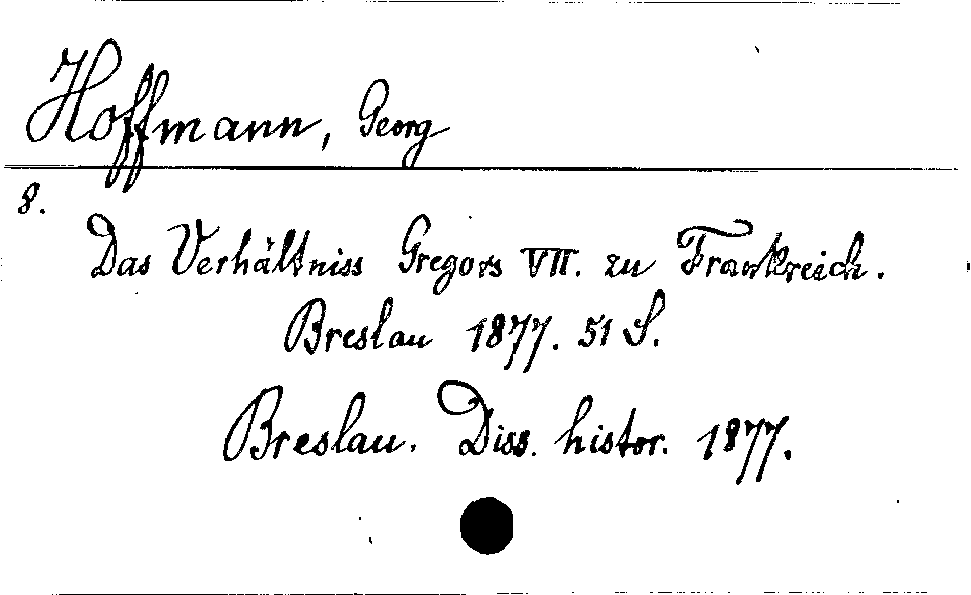 Hoffmann, Georg
8.
Das Verhältniss Gregors VII. zu Frankreich.
Breslau 1877. 51 S.
Breslau. Diss. histor. 1877.